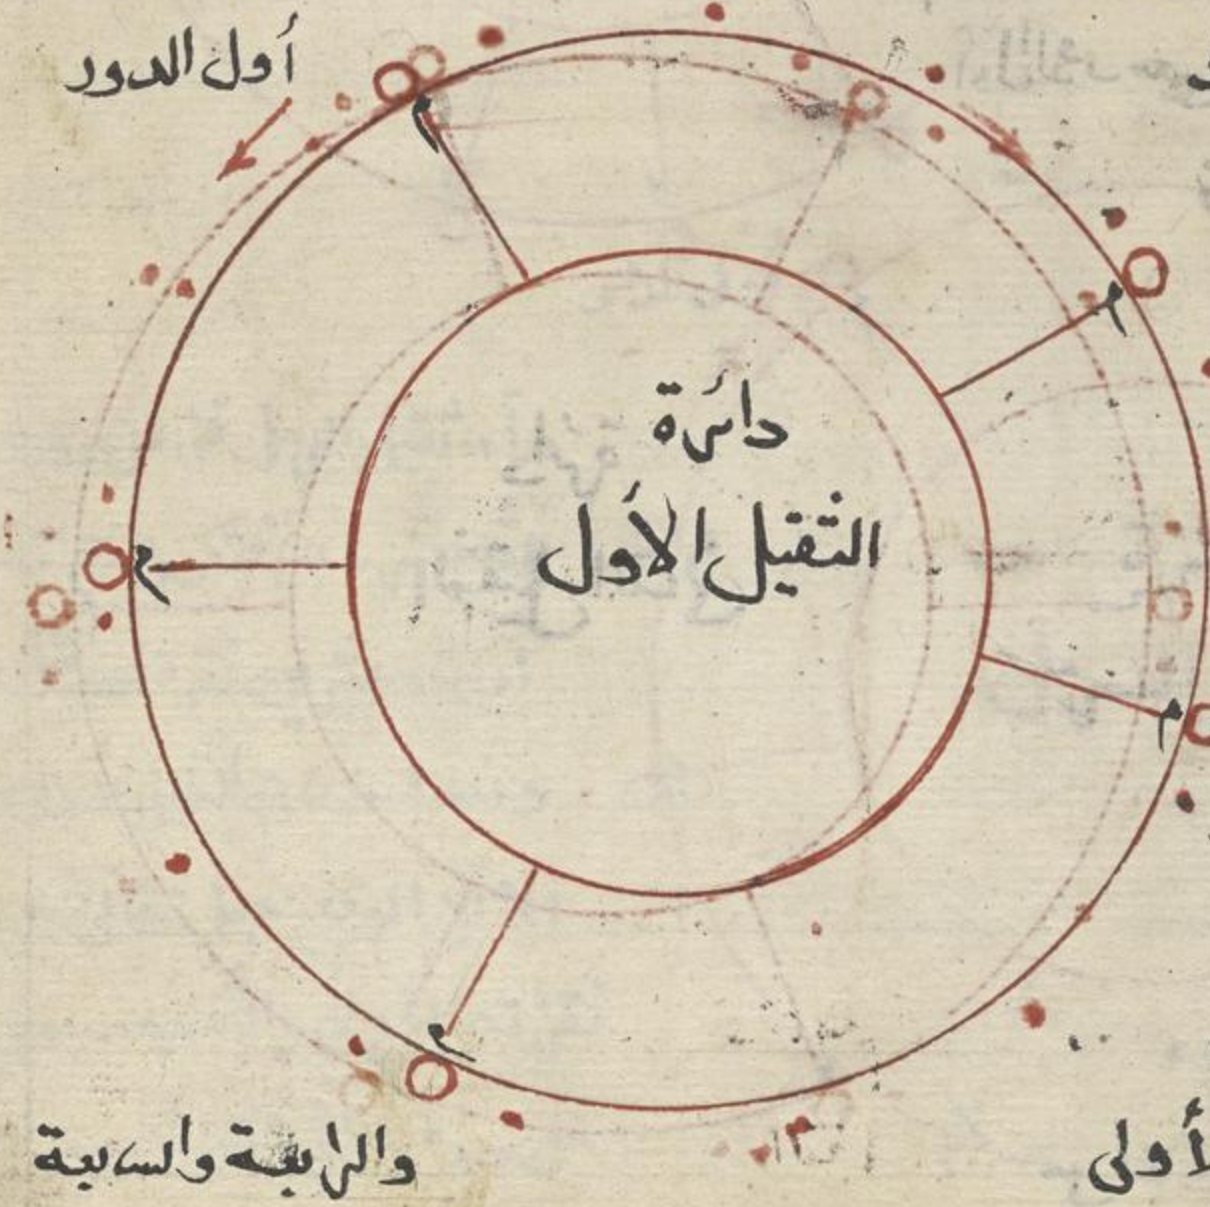 أول الدور
م
م
دائرة
الثقيل الأول
م
م
م
والرابعة والسابعة
لأولى